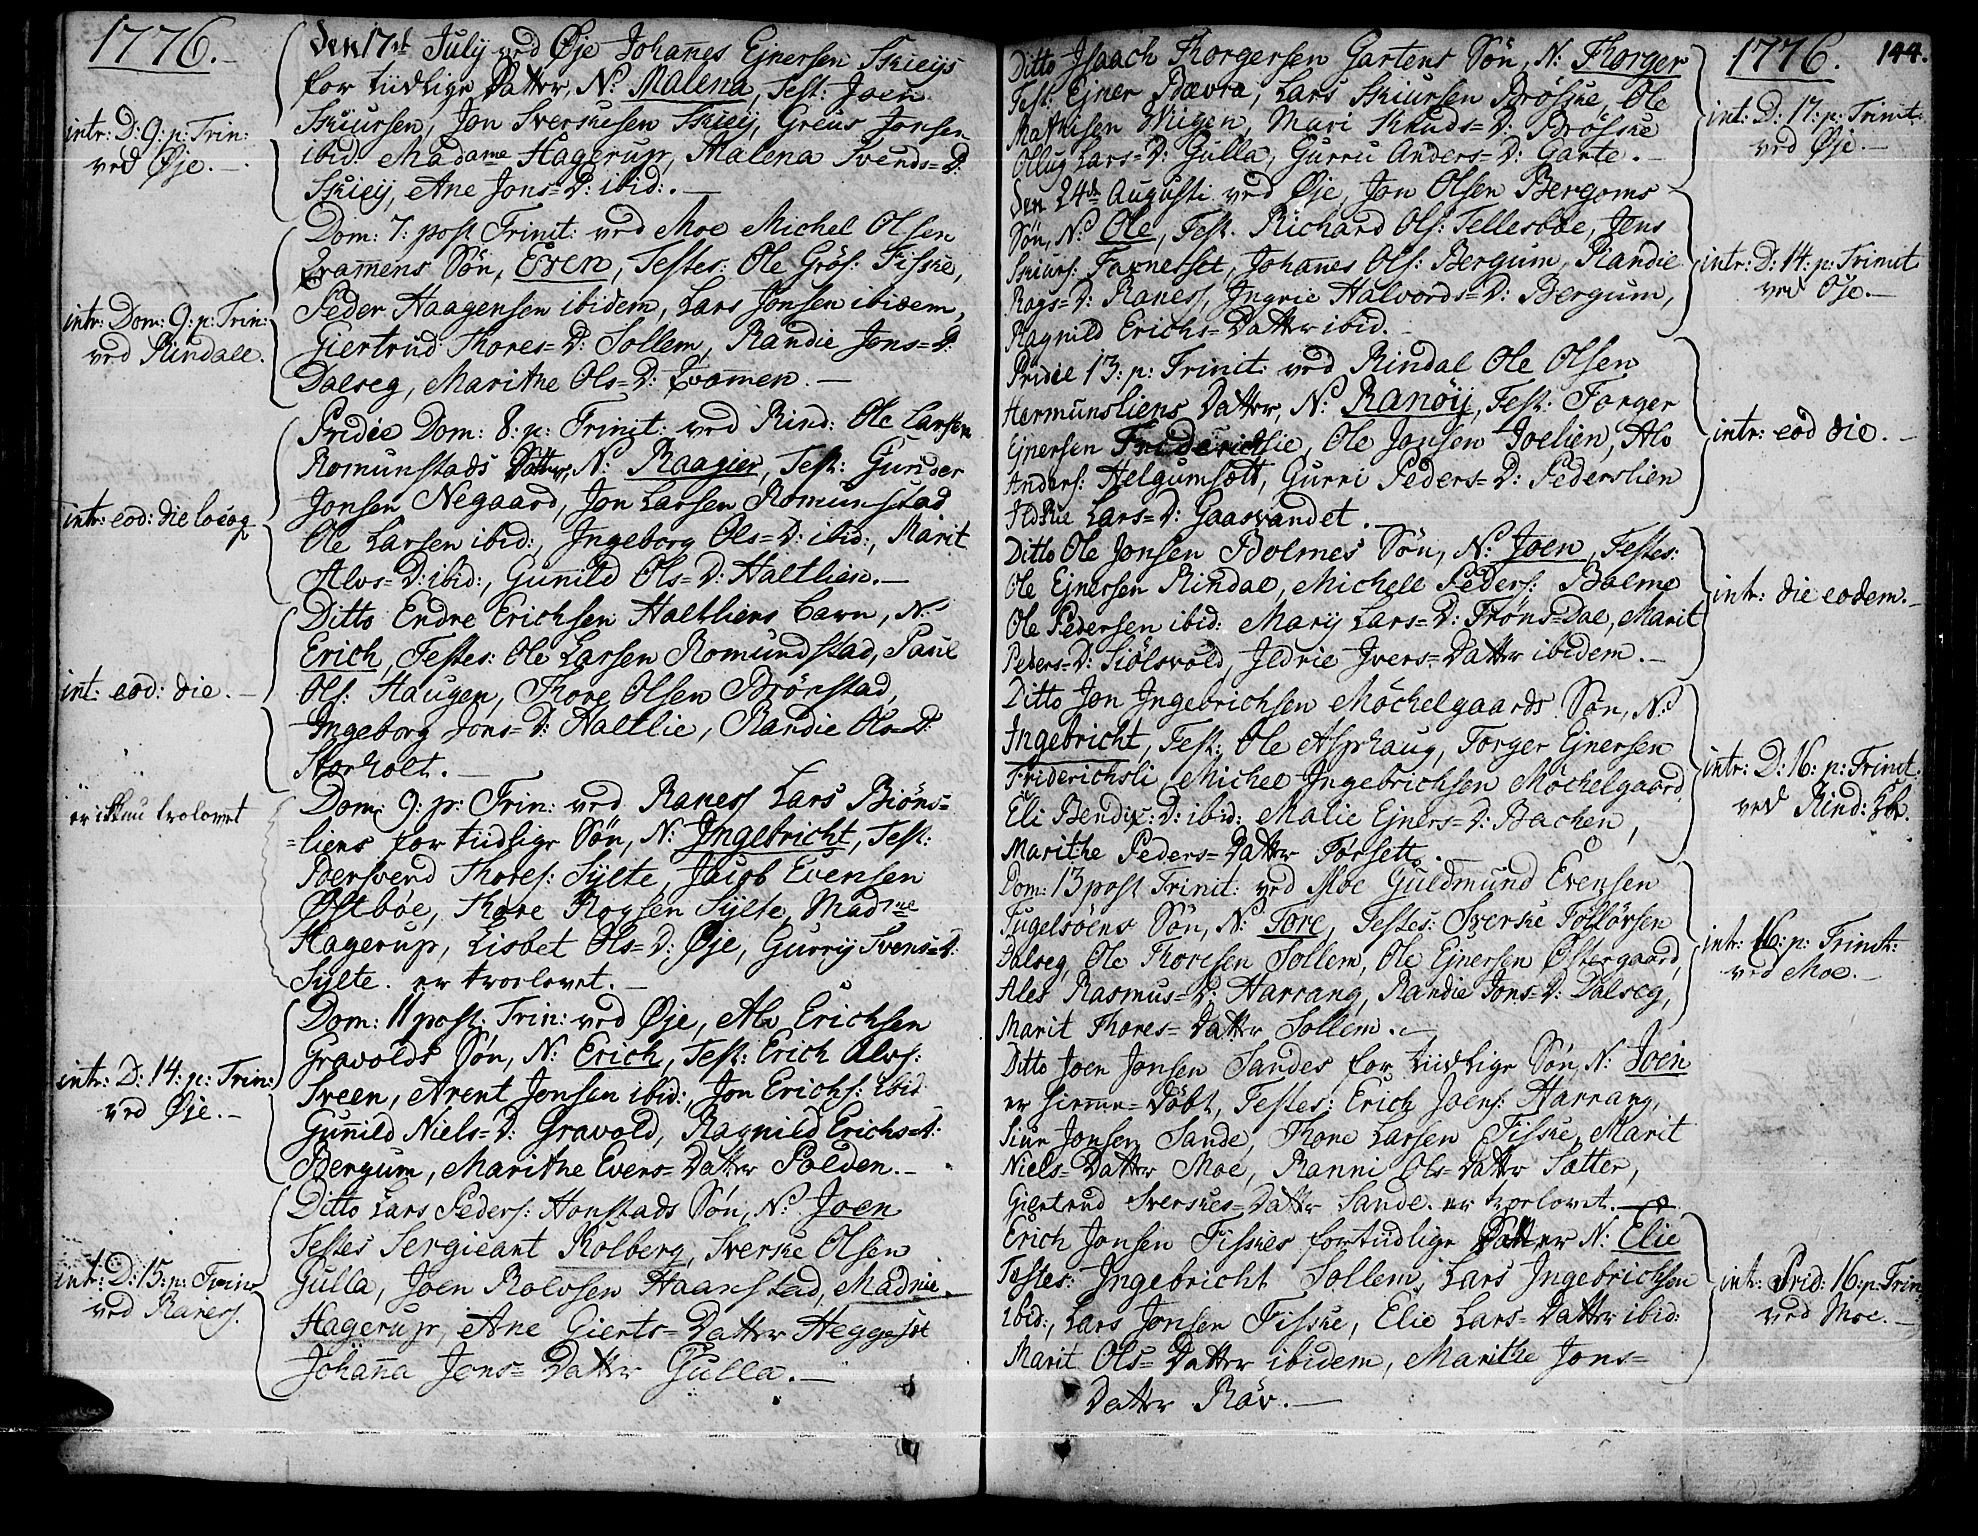 1776.
Den 17de July ved Øje Johañes Ejnersen Skieijs
for tiidlige Datter, N: Malena, Test: Joen
Skiursen, Jon Sverkesen Skieij, Greus Jonsen
ibid. Madame Hagerup, Malena Svends=D:
Skieij, Ane Jons=D: ibid:.
intr: D: 9: p: Trin:
ved Øje.
Dom: 7: post Trinit: ved Moe Michel Olsen
Qvam̃ens Søn, Even, Testes: Ole Grös: Fiske,
Peder Haagensen ibidem, Lars Jonsen ibidem,
Giertrud Thores=D: Sollem, Randie Jons=D:
Dalseg, Marithe Ols=D: Qvamen.
intr: Dom: 9: p: Trin:
ved Rindale.
Pridie Dom: 8: p: Trinit: ved Rind: Ole Larsen
Romunstads Datter, N: Raagier, Test: Gunder
Jonsen Negaard, Jon Larsen Romunstad
Ole Larsen ibid:, Ingeborg Ols=D: ibid:, Marit
Alvs=D: ibid:, Guñild Ols=D: Haltlien.
intr: eod: die locoq
Ditto Endre Erichsen Haltliens barn, N:
Erich, Testes: Ole Larsen Romundstad, Paul
Ols: Haugen, Thore Olsen Brönstad,
Ingeborg Jons=D: Haltlie, Randie Ols=D:
Storholt.
int: eod: die.
Dom: 9: p: Trin: ved Raness Lars Biöns=
=liens for tiidlige Søn, N: Ingebricht, Test:
Bersvend Thores: Sylte, Jacob Evensen
Østbøe, Thore Roysen Sylte, Madme
Hagerup, Lisbet Ols=D: Øje, Gurrij Svens=D:
Sylte. er trolovet.
er ikke trolovet
Dom: 11 post: Trin: ved Øje, Alv Erichsen
Gravolds Søn, N: Erich, Test: Erich Alvs:
Sveen, Arent Jonsen ibid:, Jon Erichs: ibid
Guñild Niels=D: Gravold, Ragnild Erichs=D:
Bergum, Marithe Evers=Datter Polden.
intr: D: 14: p: Trin:
ved Øje.
Ditto Lars Peders: Honstads Søn, N: Joen
Testes Sergieant Kolberg, Sverke Olsen
Gulla, Joen Rolvsen Haanstad, Madme
Hagerup, Ane Gierts=Datter Heggeset
Johaña Jons=Datter Gulla.
int: D: 15: p: Trin
ved Raness.
1776. 144.
Ditto Isaach Thorgersen Gartens Søn, N: Thorger
Test: Ejner Bævra, Lars Skiursen Bröske, Ole
Mathisen Wiigen, Mari Knuds=D: Bröske
Ollug Lars=D: Gulla, Gurru Anders=D: Garte.
int: D: 17: p: Trinit:
ved Øje.
Den 24de Augusti ved Øje, Jon Olsen Bergoms
Søn, N: Ole, Test. Richard Ols: Tellesbøe, Jens
Skiurs: Farnesset, Johañes Ols: Bergum, Randie
Rags=D: Raness, Ingrie Halvords=D: Bergum,
Ragnild Erichs=Datter ibid.
intr: D: 14: p: Trinit
ved Øje.
Pridie 13: p: Trinit: ved Rindal Ole Olsen
Hermunsliens Datter, N: Ranöij, Test: Torger
Ejnersen Friderichslie, Ole Jonsen Joelien, Alv
Anders: Helgumsett, Gurri Peders=D: Pederslien
Ildrie Lars=D: Gaasvandet.
intr: eod die.
Ditto Ole Jonsen Bolmes Søn, N: Joen, Testes:
Ole Ejnersen Rindal, Michell Peders: Bolme
Ole Pedersen ibid: Marij Lars=D: Tröns=Dae, Marit
Peders=D: Siölsvold, Ildrie Ivers=Datter ibidem.
intr: die eodem.
Ditto Jon Ingebrichsen Möchelgaards Søn, N:
Ingebricht, Test: Ole Asphaug, Torger Ejnersen
Friderichsli, Michel Ingebrichsen Möchelgaard,
Eli Bendix:D: ibid: Malie Ejners=D: Bachen,
Marithe Peders=Datter Torsett.
intr: D: 16: p: Trinit.
ved Rind:
Dom: 13 post Trinit: ved Moe Guldmund Evensen
Fugelsöens Søn, N: Tore, Testes: Sverke Tollövsen
Dalseg, Ole Thoresen Sollem, Ole Ejnersen Østergaard,
Ales Rasmus=D: Harrang, Randie Jons=D: Dalseg,
Marit Thores=Datter Sollem.
intr: 16: p: Trinit:
ved Moe.
Ditto Joen Jonsen Sandes for tiidlige Søn, N: Joen
er hiemme=Döbt, Testes: Erich Joens: Harrang,
Siur Jonsen Sande, Thore Larsen Fiske, Marit
Niels=Datter Moe, Ranni Ols=Datter Sætter,
Giertrud Sverkes=Datter Sande. er trolovet.
Erich Jonsen Fiskes fortiidlige Datter N: Elie
Testes: Ingebricht Sollem, Lars Ingebrichsen
ibid:, Lars Jonsen Fiske, Elie Lars=Datter ibid:
Marit Ols=Datter ibidem, Marithe Jons=
Datter Räv.
int: Prid: 16: p: Trin
ved Moe.